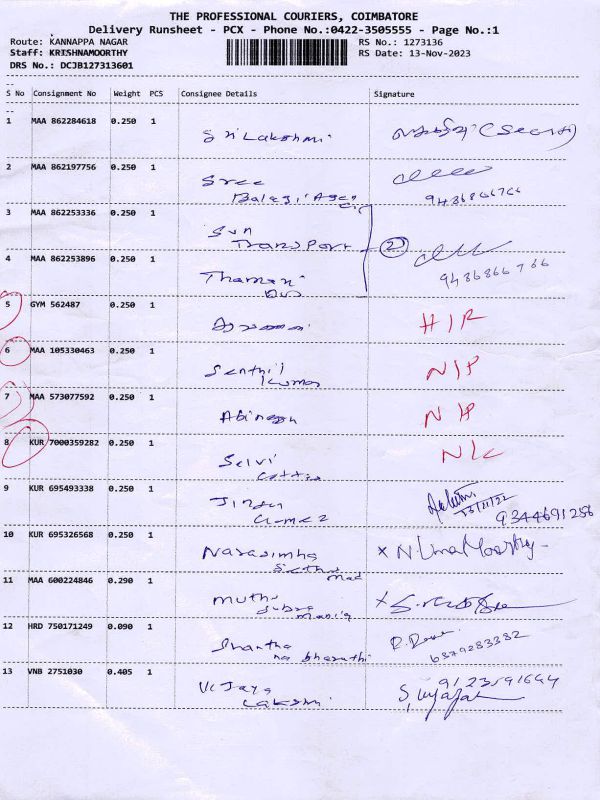 THE PROFESSIONAL COURIERS, COIMBATORE
Delivery Runsheet - PCX - Phone No.:0422-3505555 - Page No.:1
Route: KANNAPPA NAGAR RS No.: 1273136
Staff: KRISHNAMOORTHY RS Date: 13-Nov-2023
DRS No.: DCJB127313601
S No Consignment No Weight PCS Consignee Details Signature
1 MAA 862284618 0.250 1
Sri Lakshmi
2 MAA 862197756 0.250 1
Sree
Balaji Agen
cie 9486866766
3 MAA 862253336 0.250 1
Sun
Transport 2
4 MAA 862253896 0.250 1
9486866766
5 GYM 562487 0.250 1
H/R
6 MAA 105330463 0.250 1
Senthil N/P
Kumar
7 MAA 573077592 0.250 1
N/P
8 KUR 7000359282 0.250 1
Selvi N/C
9 KUR 695493338 0.250 1
9344691256
10 KUR 695326568 0.250 1
Narasimha x N. Uma Moorthy
11 MAA 600224846 0.290 1
Muthu x
Subra
mania
12 HRD 750171249 0.090 1
Shantha 6379283332
na bharathi
13 VNB 2751030 0.405 1
Vijaya 9123591644
Lakshmi